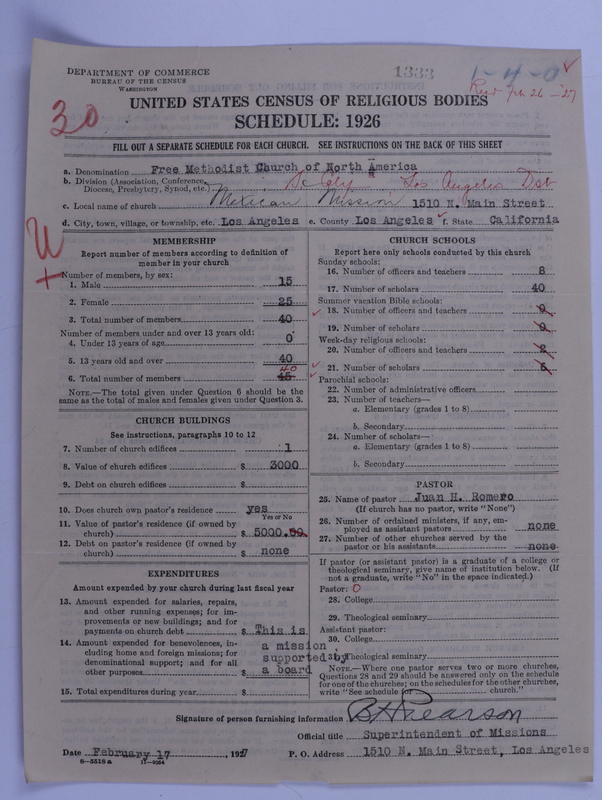 DEPARTMENT OF COMMERCE
BUREAU OF THE CENSUS
WASHINGTON
1333
1-4-0
30
UNITED STATES CENSUS OF RELIGIOUS BODIES
SCHEDULE: 1926
FILL OUT A SEPARATE SCHEDULE FOR EACH CHURCH. SEE INSTRUCTIONS ON THE BACK OF THIS SHEET
a. Denomination Free Methodist Church of North America
b. Division (Association, Conference, Diocese, Presbytery, Synod, etc.) So Calif Los Angeles Dist
c. Local name of church Mexican Mission 1510 N. Main Street
d. City, town, village, or township, etc. Los Angeles e. County Los Angeles f. State California
MEMBERSHIP
Report number of members according to definition of member in your church
Number of members, by sex:
1. Male 15
2. Female 25
3. Total number of members 40
Number of members under and over 13 years old:
4. Under 13 years of age 0
5. 13 years old and over 40
40
6. Total number of members 45
NOTE.—The total given under Question 6 should be the same as the total of males and females given under Question 3.
CHURCH BUILDINGS
See instructions, paragraphs 10 to 12
7. Number of church edifices 1
8. Value of church edifices $ 3000
9. Debt on church edifices $
10. Does church own pastor's residence yes
Yes or No
11. Value of pastor's residence (if owned by church) $ 5000.00
12. Debt on pastor's residence (if owned by church) $ none
EXPENDITURES
Amount expended by your church during last fiscal year
13. Amount expended for salaries, repairs, and other running expenses; for improvements or new buildings; and for payments on church debt $ This is
14. Amount expended for benevolences, including home and foreign missions; for denominational support; and for all other purposes $ a mission supported by a board
15. Total expenditures during year $
CHURCH SCHOOLS
Report here only schools conducted by this church
Sunday schools:
16. Number of officers and teachers 8
17. Number of scholars 40
Summer vacation Bible schools:
18. Number of officers and teachers 0
19. Number of scholars 0
Week-day religious schools:
20. Number of officers and teachers 2
21. Number of scholars
Parochial schools:
22. Number of administrative officers
23. Number of teachers—
a. Elementary (grades 1 to 8)
b. Secondary
24. Number of scholars—
a. Elementary (grades 1 to 8)
b. Secondary
PASTOR
25. Name of pastor Juan H. Romero
(If church has no pastor, write "None")
26. Number of ordained ministers, if any, employed as assistant pastors none
27. Number of other churches served by the pastor or his assistants none
If pastor (or assistant pastor) is a graduate of a college or theological seminary, give name of institution below. (If not a graduate, write "No" in the space indicated.)
Pastor: 0
28. College
29. Theological seminary
Assistant pastor:
30. College
31. Theological seminary
NOTE.—Where one pastor serves two or more churches, Questions 28 and 29 should be answered only on the schedule for one of the churches; on the schedules for the other churches, write "See schedule for church."
Signature of person furnishing information B H Pearson
Official title Superintendent of Missions
Date February 17 1927 P. O. Address 1510 N. Main Street, Los Angeles
8—5518 a